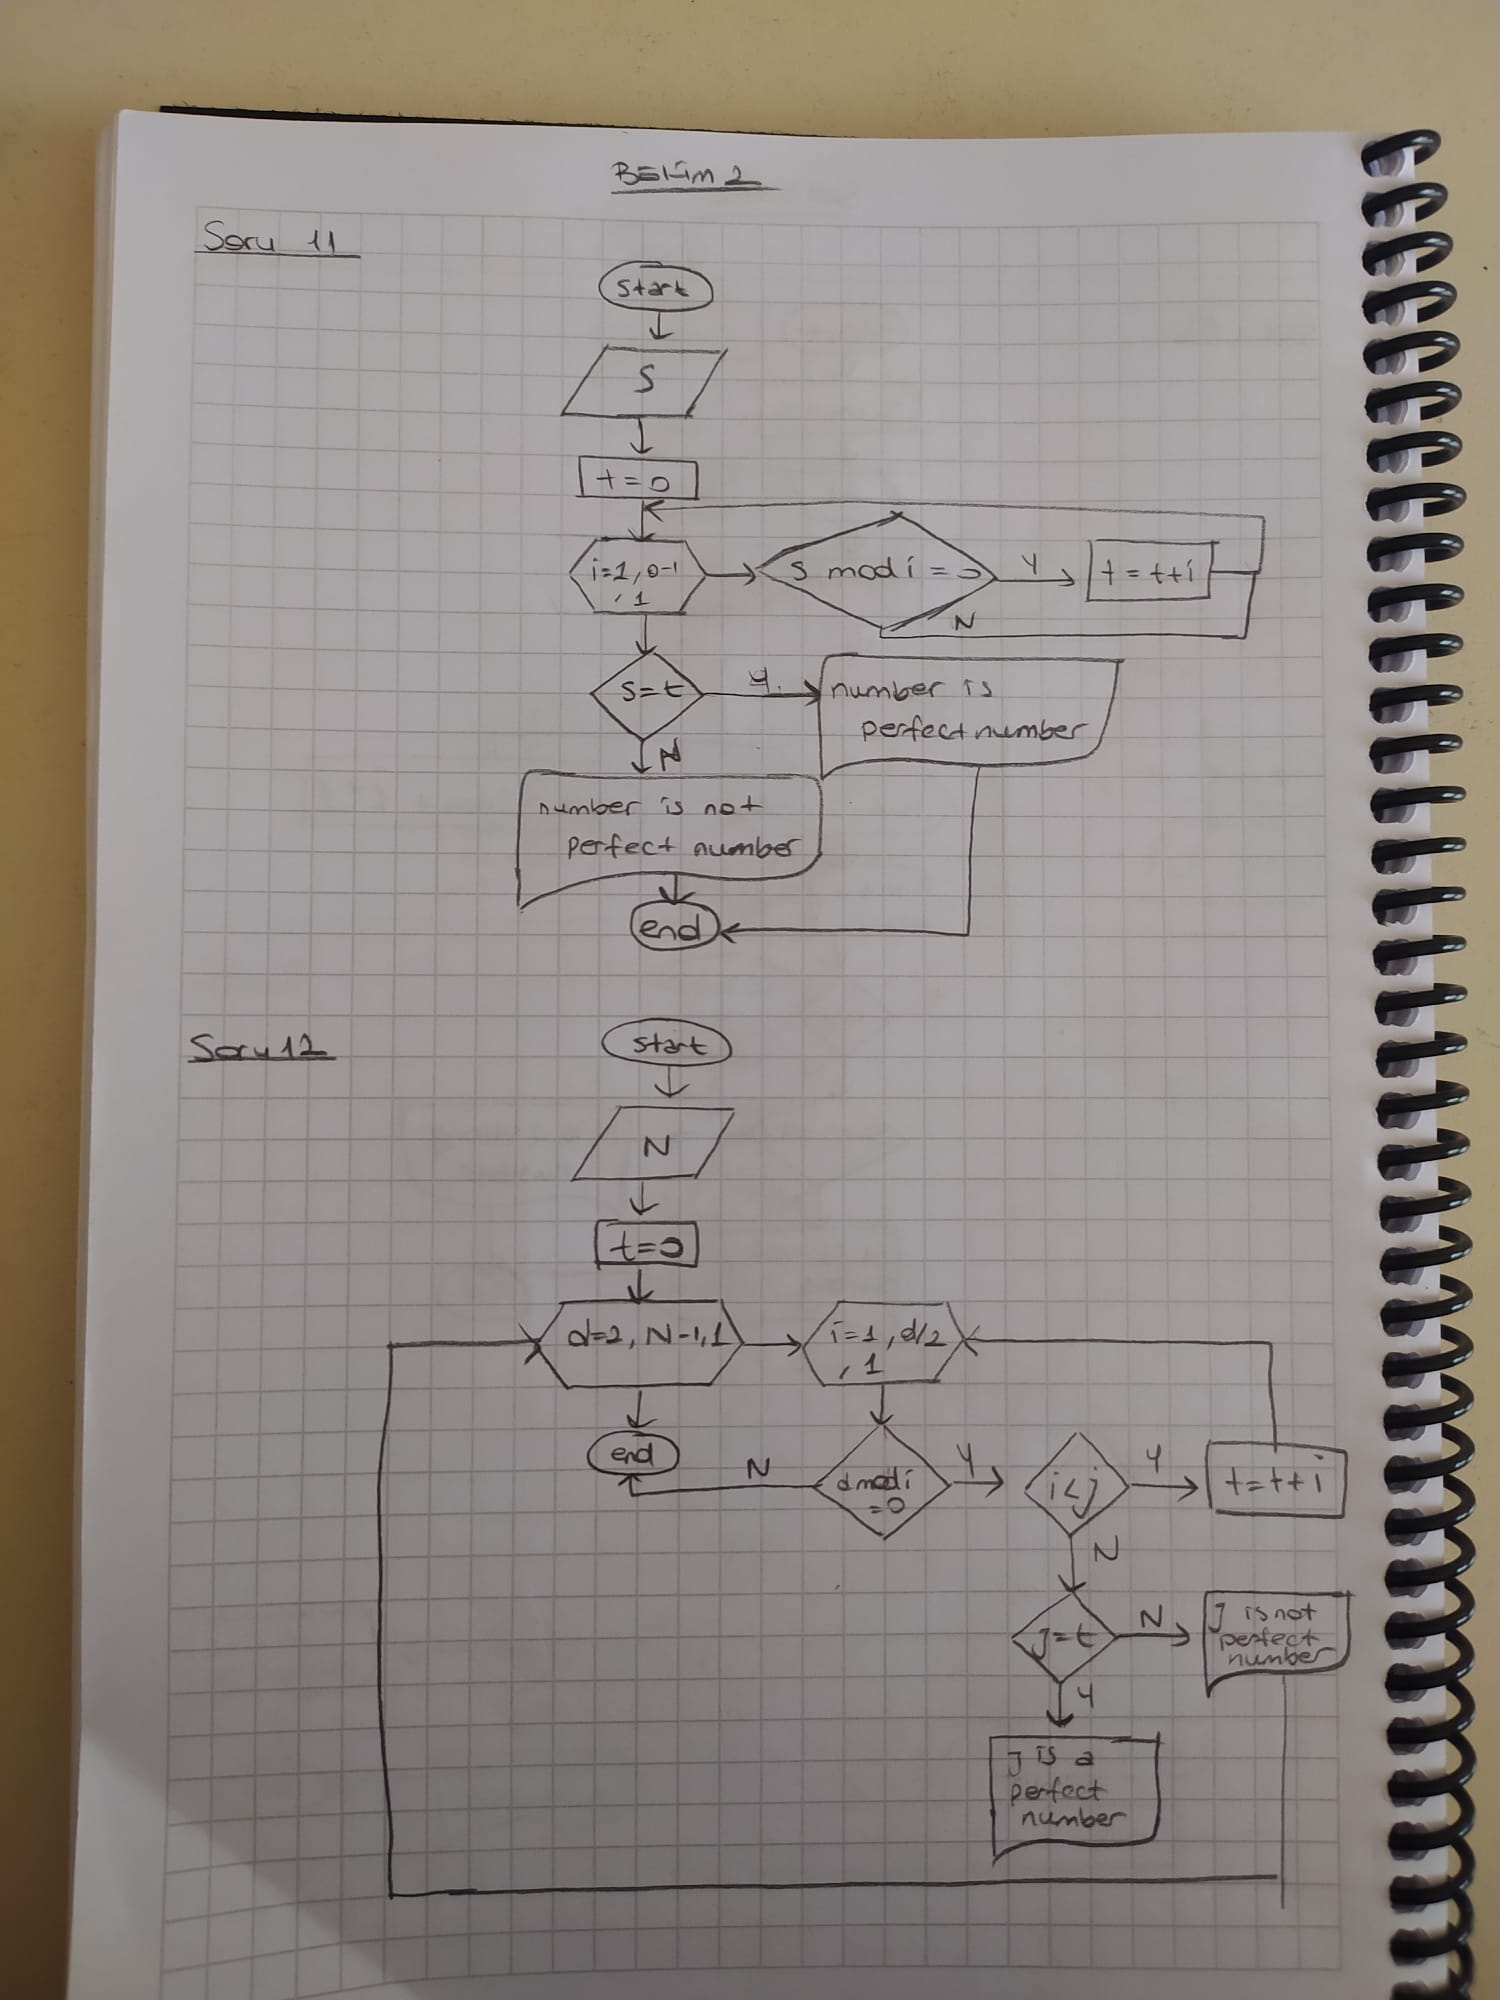 Bölüm 2
Soru 11
start
S
t=0
i=1, 0-1
, 1
S mod i = 0
Y
t = t+i
N
S=t
Y
number is
perfect number
N
number is not
perfect number
end
Soru 12
start
N
t=0
d=2, N-1, 1
i=1, d/2
, 1
end
N
d mod i
=0
Y
i<j
Y
t=t+i
N
j=t
N
J is not
perfect
number
Y
J is a
perfect
number